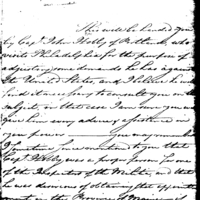 This will be handed you
by Capt John Holly of Portland, who
visits Philadelphia for the purpose of
adjusting some demands he has against
the United States, and I believe he may
find it necessary to consult you on the
subject, in that case I am sure you will
give him every advice & assistance in
your power — you may remember
I sometime since mentioned to you that
Capt Holly was a proper person for one
of the Inspectors of the Militia, and that
he was desirous of obtaining the appoint
ment in the Province of Maine